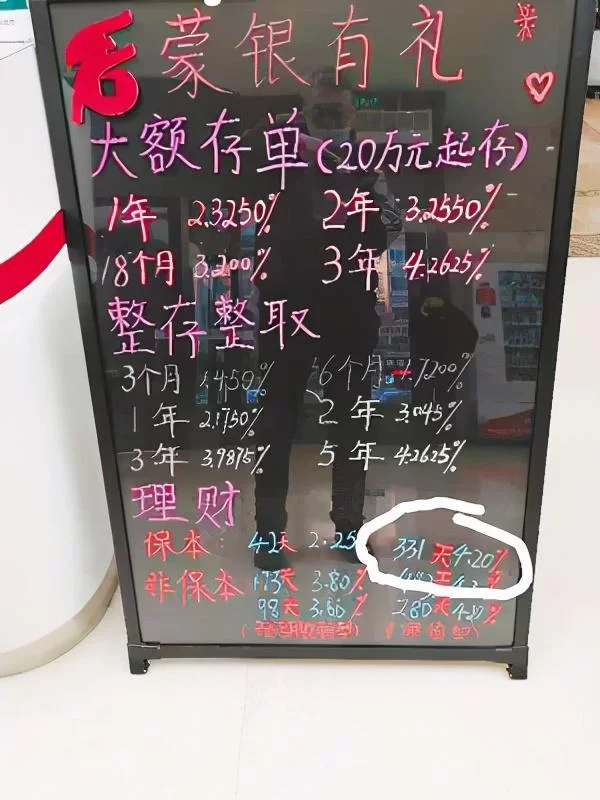 蒙银有礼
大额存单(20万元起存)
1年 2.3250% 2年 3.2550%
18个月 3.200% 3年 4.2625%
整存整取
3个月 1.450% 6个月 1.7200%
1年 2.1750% 2年 3.045%
3年 3.9875% 5年 4.2625%
理财
保本: 42天 2.25 331天4.20%
非保本 173天 3.80%
98天 3.60% 280天